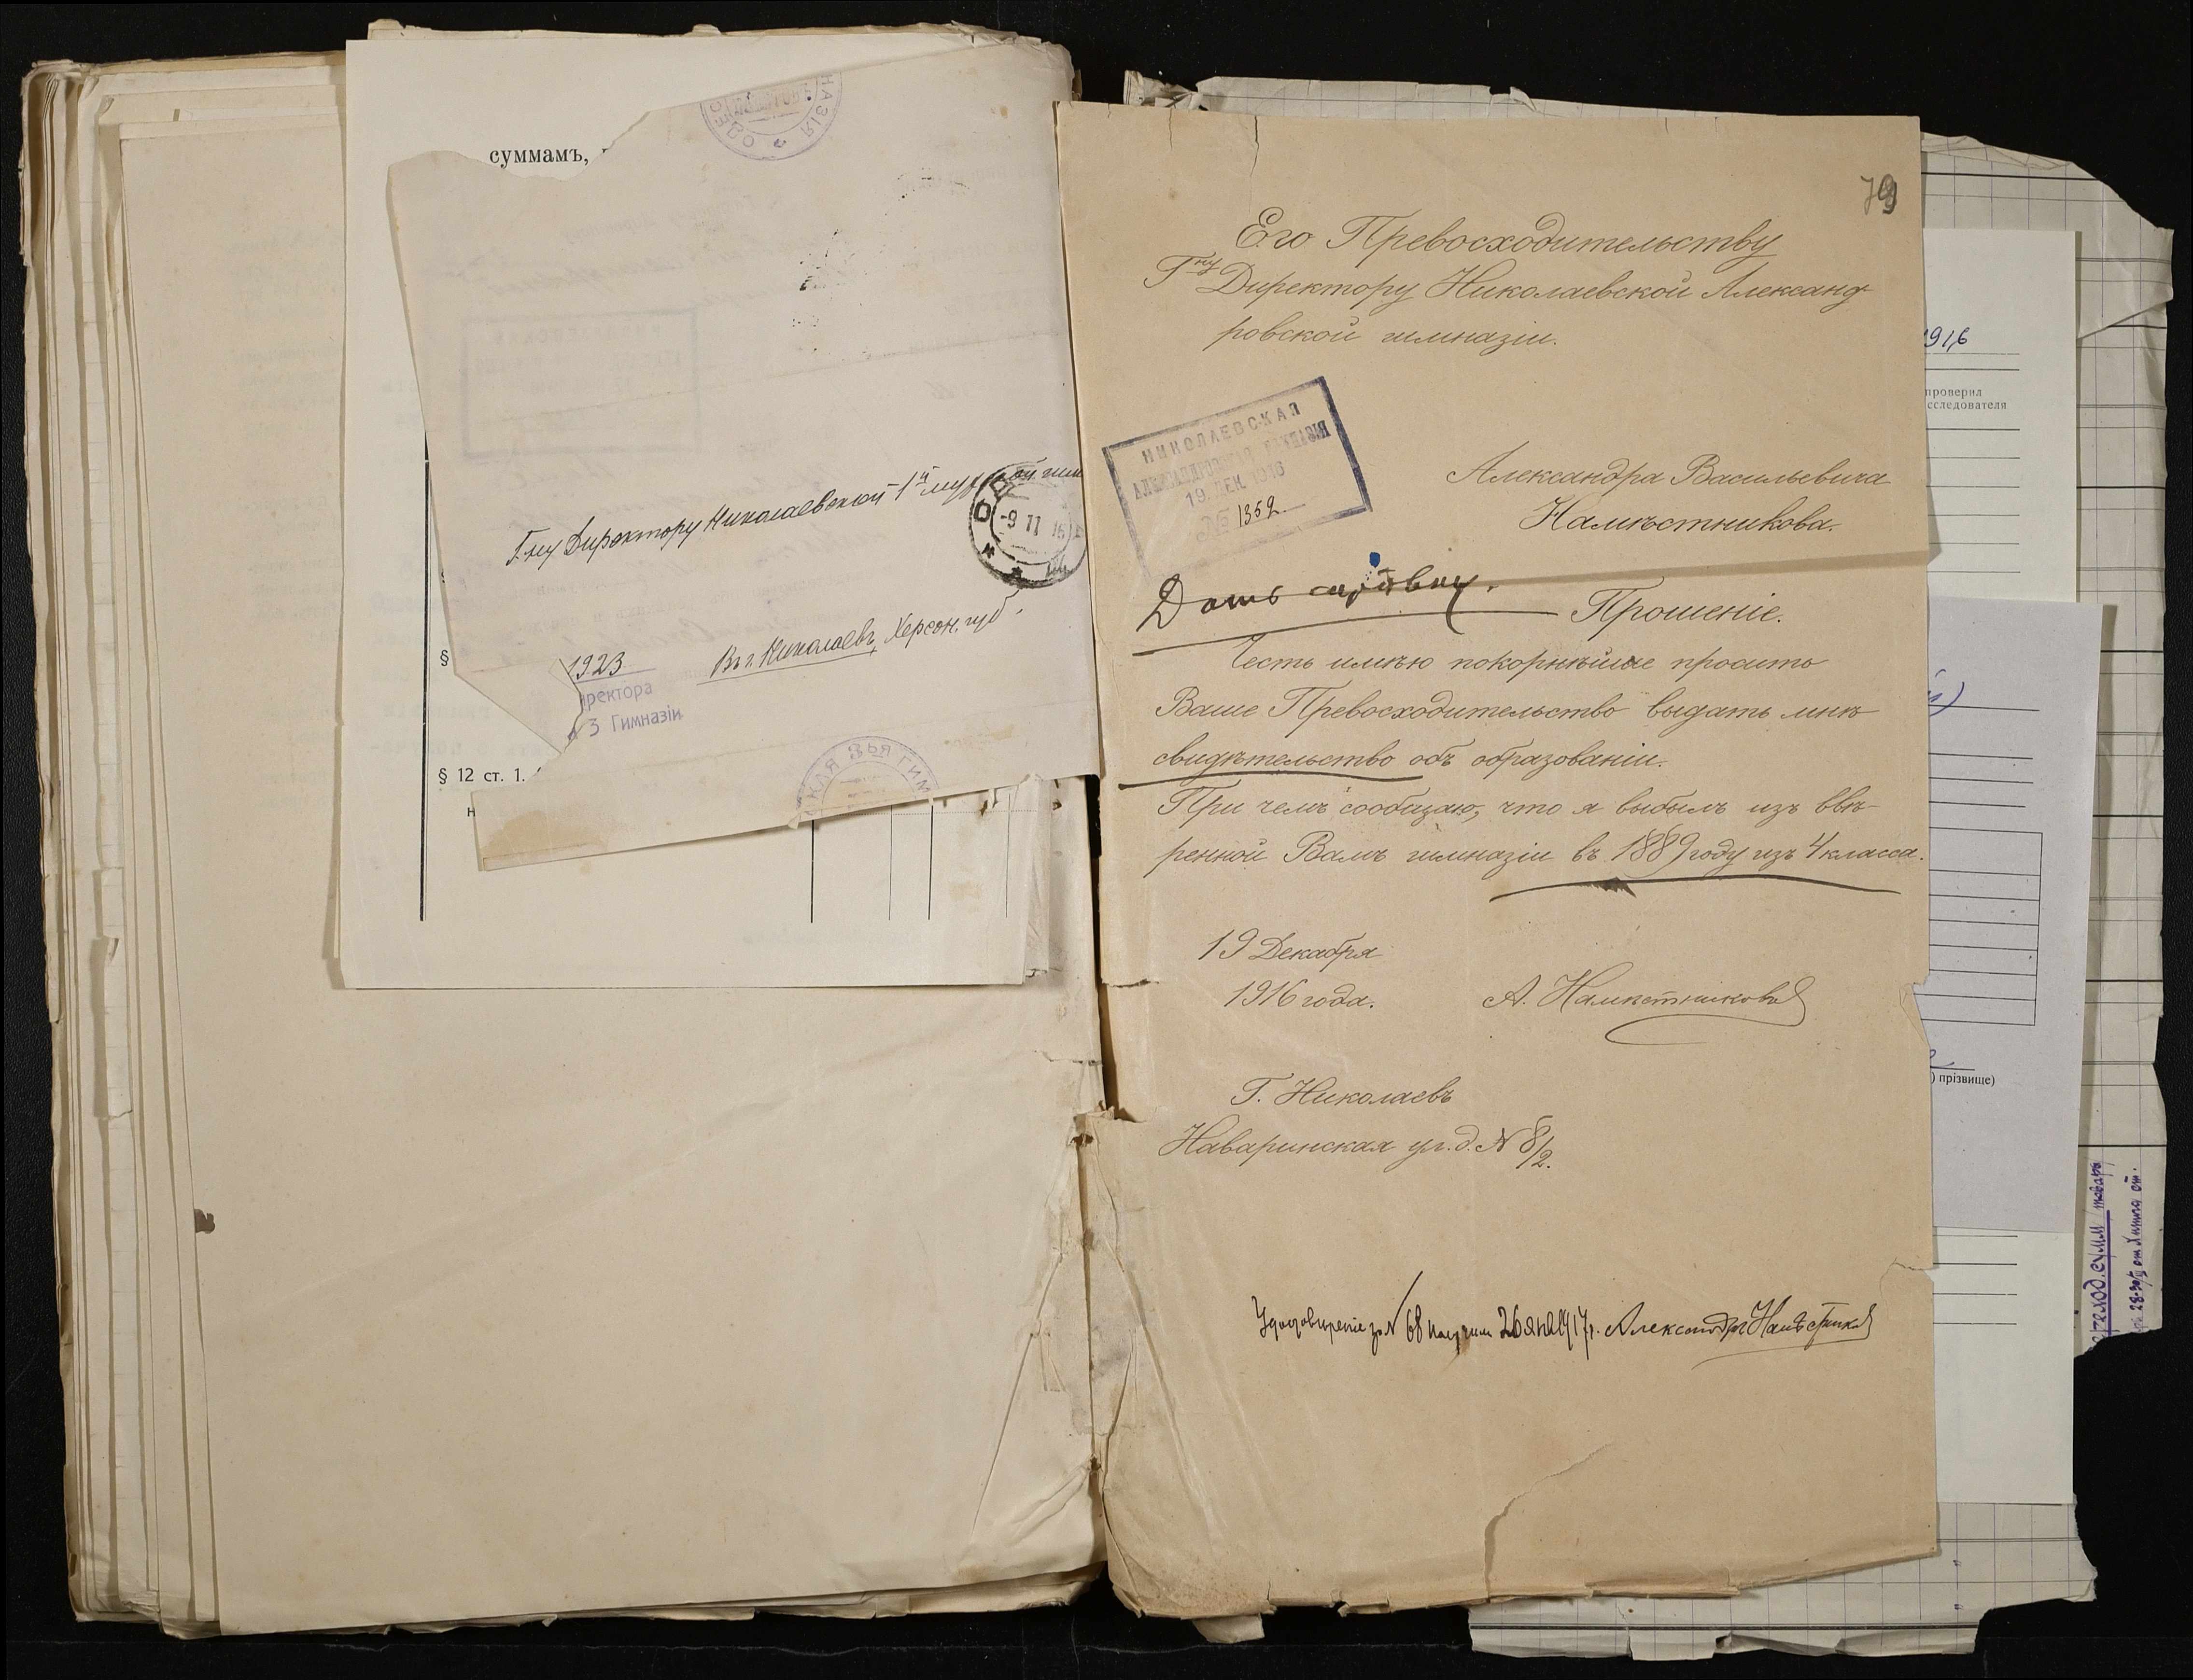 суммамъ,
Г-ну Директору Николаевской 1й муж
-9 11 16
1923
Въ г. Николаевъ, Херсон. губ.
иректора
3 Гимназіи
§
§ 12 ст. 1.
н
ЬЯ ГИМ
79
Его Превосходительству
Гну Директору Николаевской Александ-
ровской гимназіи.
НИКОЛАЕВСКАЯ
АЛЕКСАНДРОВСКАЯ ГИМНАЗІЯ
19. ДЕК. 1916
№ 1352
Александра Васильевича
Намѣстникова.
Дать справку.
Прошеніе.
Честь имѣю покорнѣйше просить
Ваше Превосходительство выдать мнѣ
свидѣтельство объ образованіи.
При чемъ сообщаю, что я выбылъ изъ ввѣ-
ренной Вамъ гимназіи въ 1889 году изъ 4 класса.
19 Декабря
1916 года.
А. Намѣстниковъ
Г. Николаевъ
Наваринская ул. д. N 8/2.
Удостовѣреніе за N 68 получил 26 янв 1917 г. Александръ Намѣстников
91,6
проверил
сследователя
) прізвище)